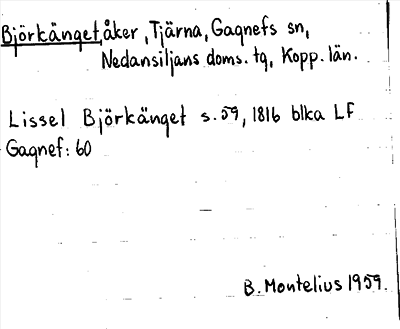 Björkänget, åker, Tjärna, Gagnefs sn,
Nedansiljans doms. tg, Kopp. län.
Lissel Björkänget s. 59, 1816 blka LF
Gagnef: 60
B. Montelius 1959.